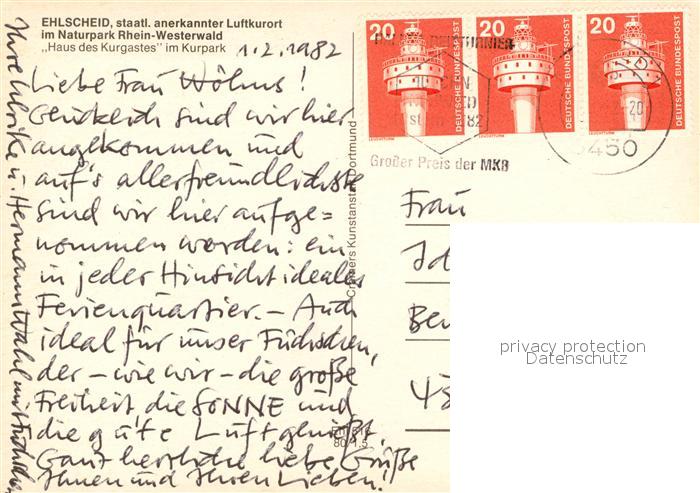 EHLSCHEID, staatl. anerkannter Luftkurort
im Naturpark Rhein-Westerwald
„Haus des Kurgastes" im Kurpark
1.2.1982
Liebe Frau Wöhns!
Glücklich sind wir hier
angekommen und
auf's allerfreundlichste
sind wir hier aufge=
nommen worden: ein
in jeder Hinsicht ideales
Ferienquartier. – Auch
ideal für unser Füchschen,
der – wie wir – die große
Freiheit, die SONNE und
die gute Luft genießt.
Ganz herzliche liebe Grüße
Ihnen und Ihren Lieben!
Ihre Ulrike u. Hermann Wahl mit Füchschen
Cramers Kunstanstalt Dortmund
80 1.5
20 20 20
DEUTSCHE BUNDESPOST
DEUTSCHE BUNDESPOST
DEUTSCHE BUNDESPOST
LEUCHTTURM LEUCHTTURM LEUCHTTURM
Großer Preis der MKB
20
5450
Frau
privacy protection
Datenschutz